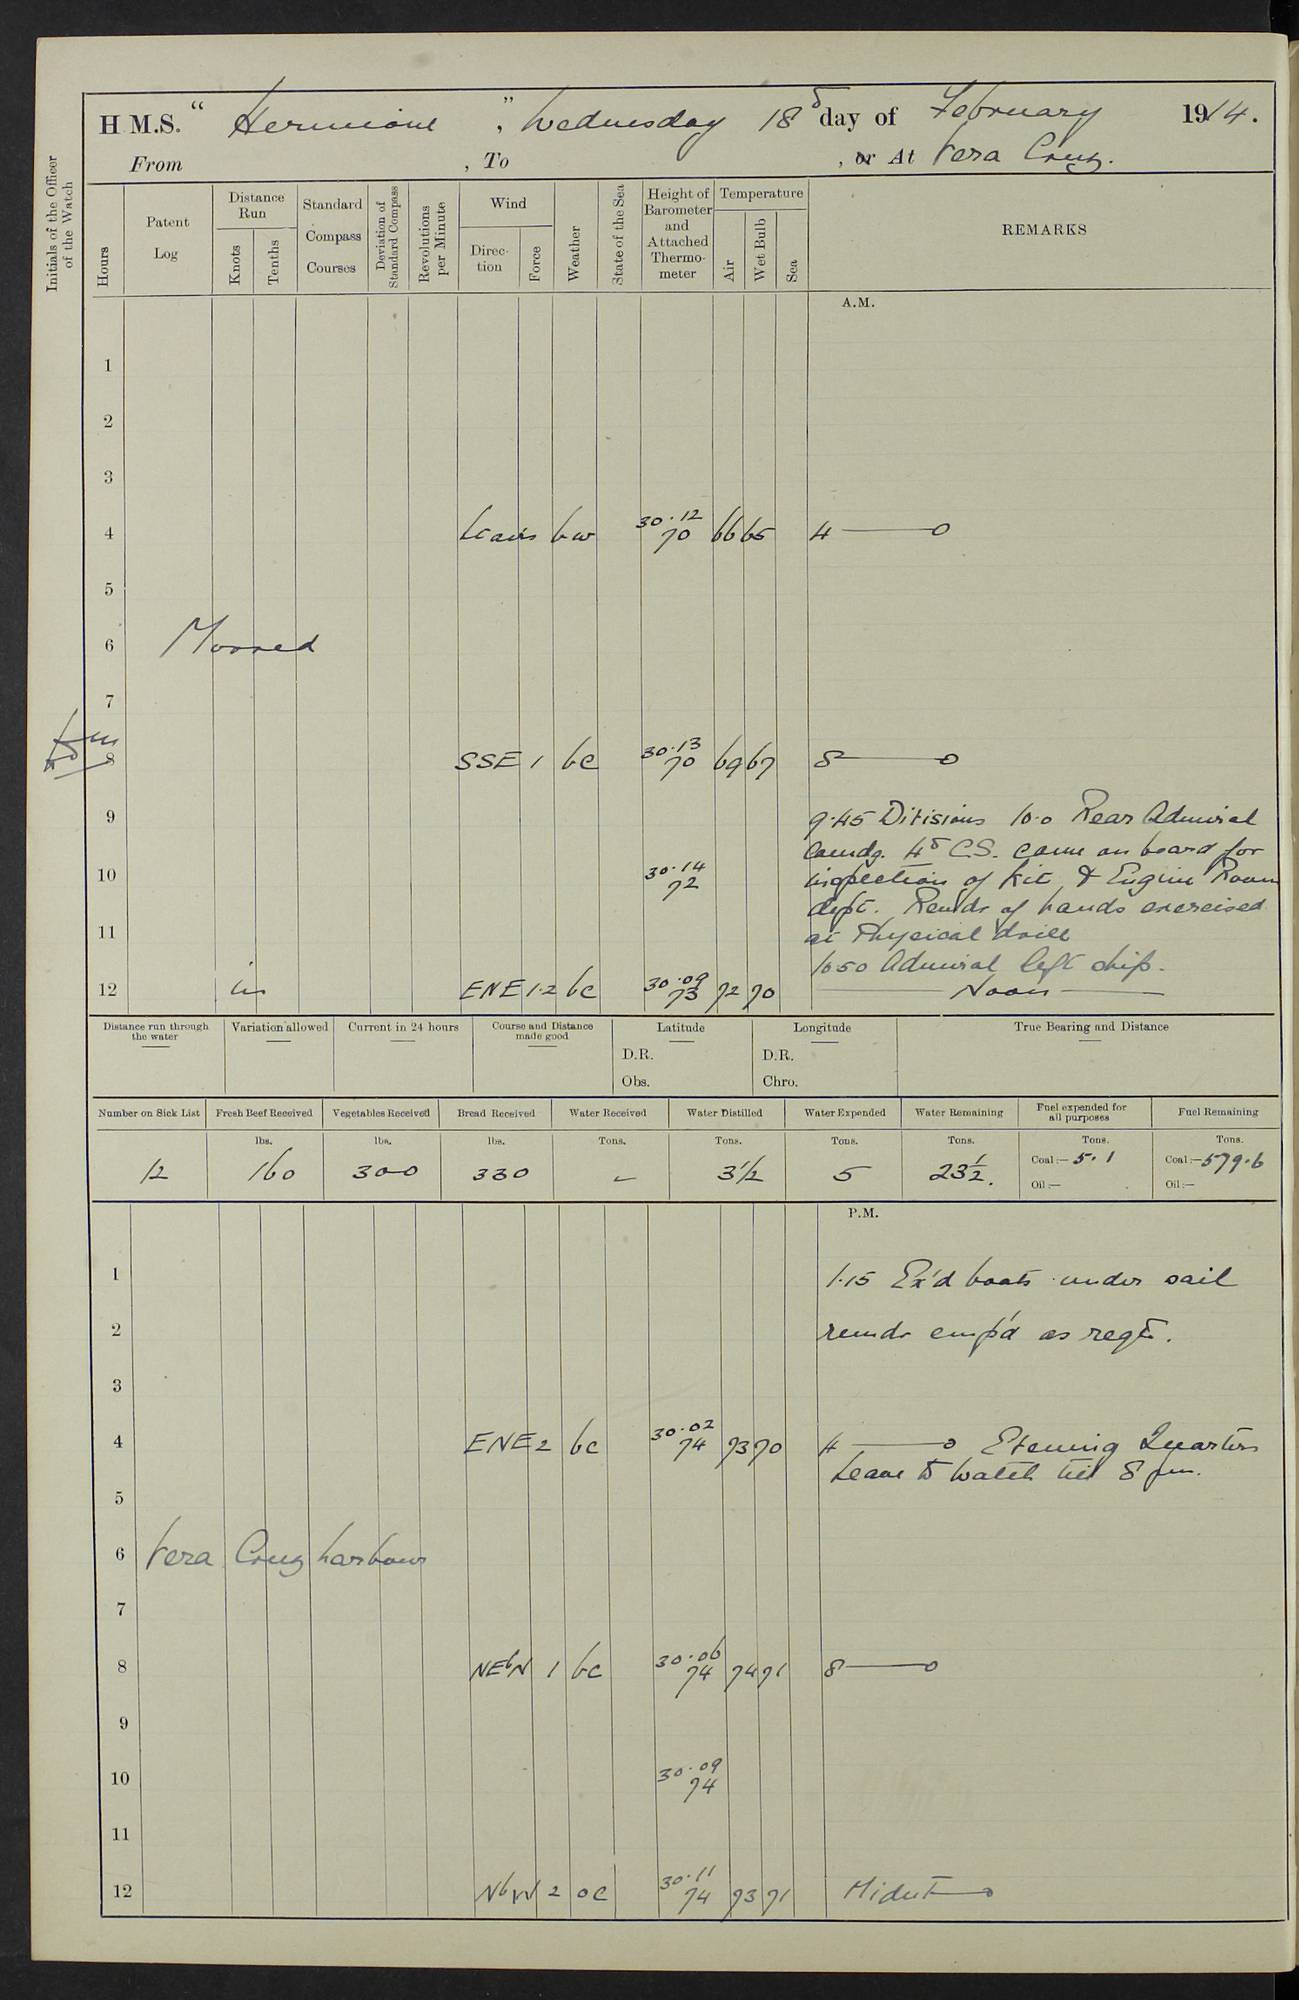 H.M.S. " Hermione ", Wednesday 18th day of February 1914.
From , To , or At Vera Cruz.
Initials of the Officer of the Watch
Hours
Patent Log
Distance Run
Knots
Tenths
Standard Compass Courses
Deviation of Standard Compass
Revolutions per Minute
Wind
Direction
Force
Weather
State of the Sea
Height of Barometer and Attached Thermometer
Temperature
Air
Wet Bulb
Sea
REMARKS
A.M.
1
2
3
4 bw 30.12 70 66 65 4
5
6 Moored
7
8 SSE 1 bc 30.13 70 69 67 8
9 9.45 Divisions 10.0 Rear Admiral
Comdg. 4th C.S. came on board for
10 30.14 72 inspection of Kit & Engine Room
dept. Remdr of hands exercised
11 at Physical drill
1050 Admiral left ship.
12 in ENE 1-2 bc 30.09 73 72 70 Noon
Distance run through the water
Variation allowed
Current in 24 hours
Course and Distance made good
Latitude
D.R.
Obs.
Longitude
D.R.
Chro.
True Bearing and Distance
Number on Sick List Fresh Beef Received Vegetables Received Bread Received Water Received Water Distilled Water Expended Water Remaining Fuel expended for all purposes Fuel Remaining
lbs. lbs. lbs. Tons. Tons. Tons. Tons. Tons. Tons.
12 160 300 330 - 3 1/2 5 23 1/2. Coal:- 5.1 Coal:- 579.6
Oil:- Oil:-
P.M.
1 1.15 Ex'd boats under sail
2 remdr emp'd as reqd.
3
4 ENE 2 bc 30.02 74 73 70 4 Evening Quarters
Leave to Watch till 8 pm.
5
6 Vera Cruz harbour
7
8 NEbN 1 bc 30.06 74 74 71 8
9
10 30.09 74
11
12 NbW 2 oc 30.11 74 73 71 Midnt